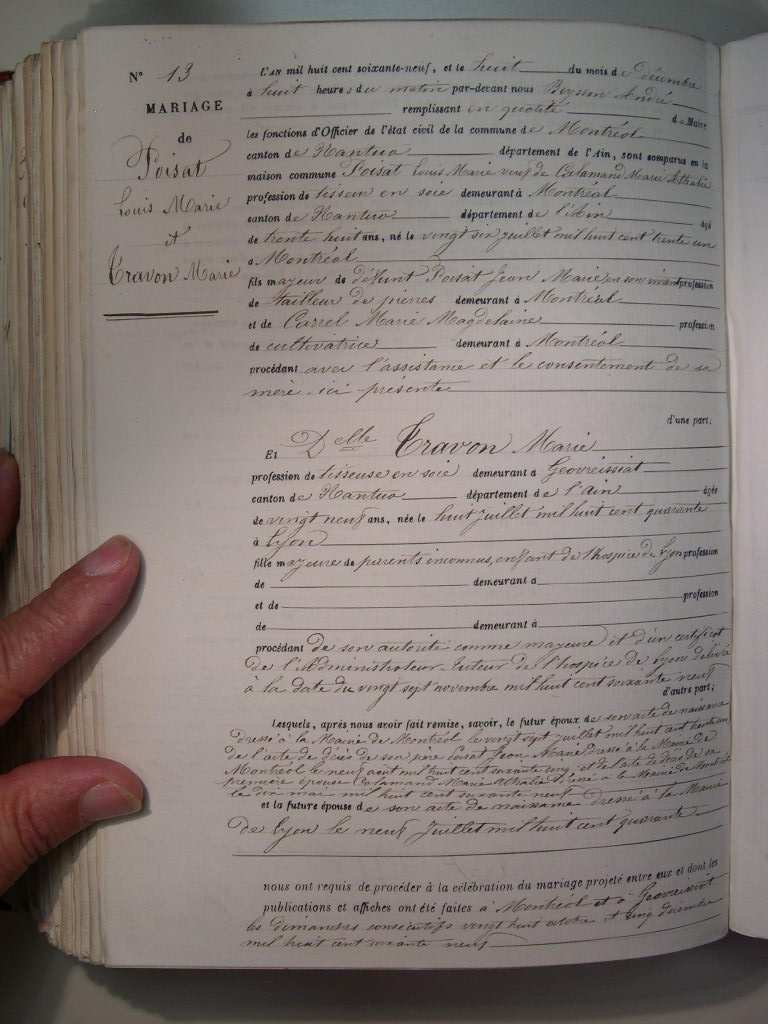 N° 13
MARIAGE
de
Poisat
Louis Marie
et
Travon Marie
L'AN mil huit cent soixante-neuf, et le huit du mois de Décembre
à huit heures du matin par-devant nous André
remplissant en qualité de Maire
les fonctions d'Officier de l'état civil de la commune de Montréal
canton de Nantua département de l'Ain, sont comparus en la
maison commune Poisat Louis Marie veuf de Calamand Marie
profession de tisseur en soie demeurant à Montréal
canton de Nantua département de l'Ain âgé
de trente huit ans, né le vingt six juillet mil huit cent trente un
à Montréal
fils majeur de défunt Poisat Jean Marie en son vivant profession
de tailleur de pierres demeurant à Montréal
et de Carrel Marie Magdelaine profession
de cultivatrice demeurant à Montréal
procédant avec l'assistance et le consentement de sa
mère ici présente
d'une part;
Et Delle Travon Marie
profession de tisseuse en soie demeurant à Geovreissiat
canton de Nantua département de l'Ain âgée
de vingt neuf ans, née le huit juillet mil huit cent quarante
à Lyon
fille majeure de parents inconnus, enfant de l'hospice de Lyon profession
de demeurant à
et de profession
de demeurant à
procédant de son autorité comme majeure et d'un certificat
de l'Administrateur tuteur de l'hospice de Lyon délivré
à la date du vingt sept novembre mil huit cent soixante neuf
d'autre part;
Lesquels, après nous avoir fait remise, savoir, le futur époux de son acte de naissance
dressé à la Mairie de Montréal le vingt sept juillet mil huit cent trente un
de l'acte de décès de son père Poisat Jean Marie dressé à la Mairie de
Montréal le neuf août mil huit cent soixante cinq et de l'acte de décès de sa
première épouse Calamand Marie dressé à la Mairie de Montréal
le dix mai mil huit cent soixante neuf
et la future épouse de son acte de naissance dressé à la Mairie
de Lyon le neuf Juillet mil huit cent quarante
nous ont requis de procéder à la célébration du mariage projeté entre eux et dont les
publications et affiches ont été faites à Montréal et à Geovreissiat
les dimanches consécutifs vingt huit et cinq décembre
mil huit cent soixante neuf